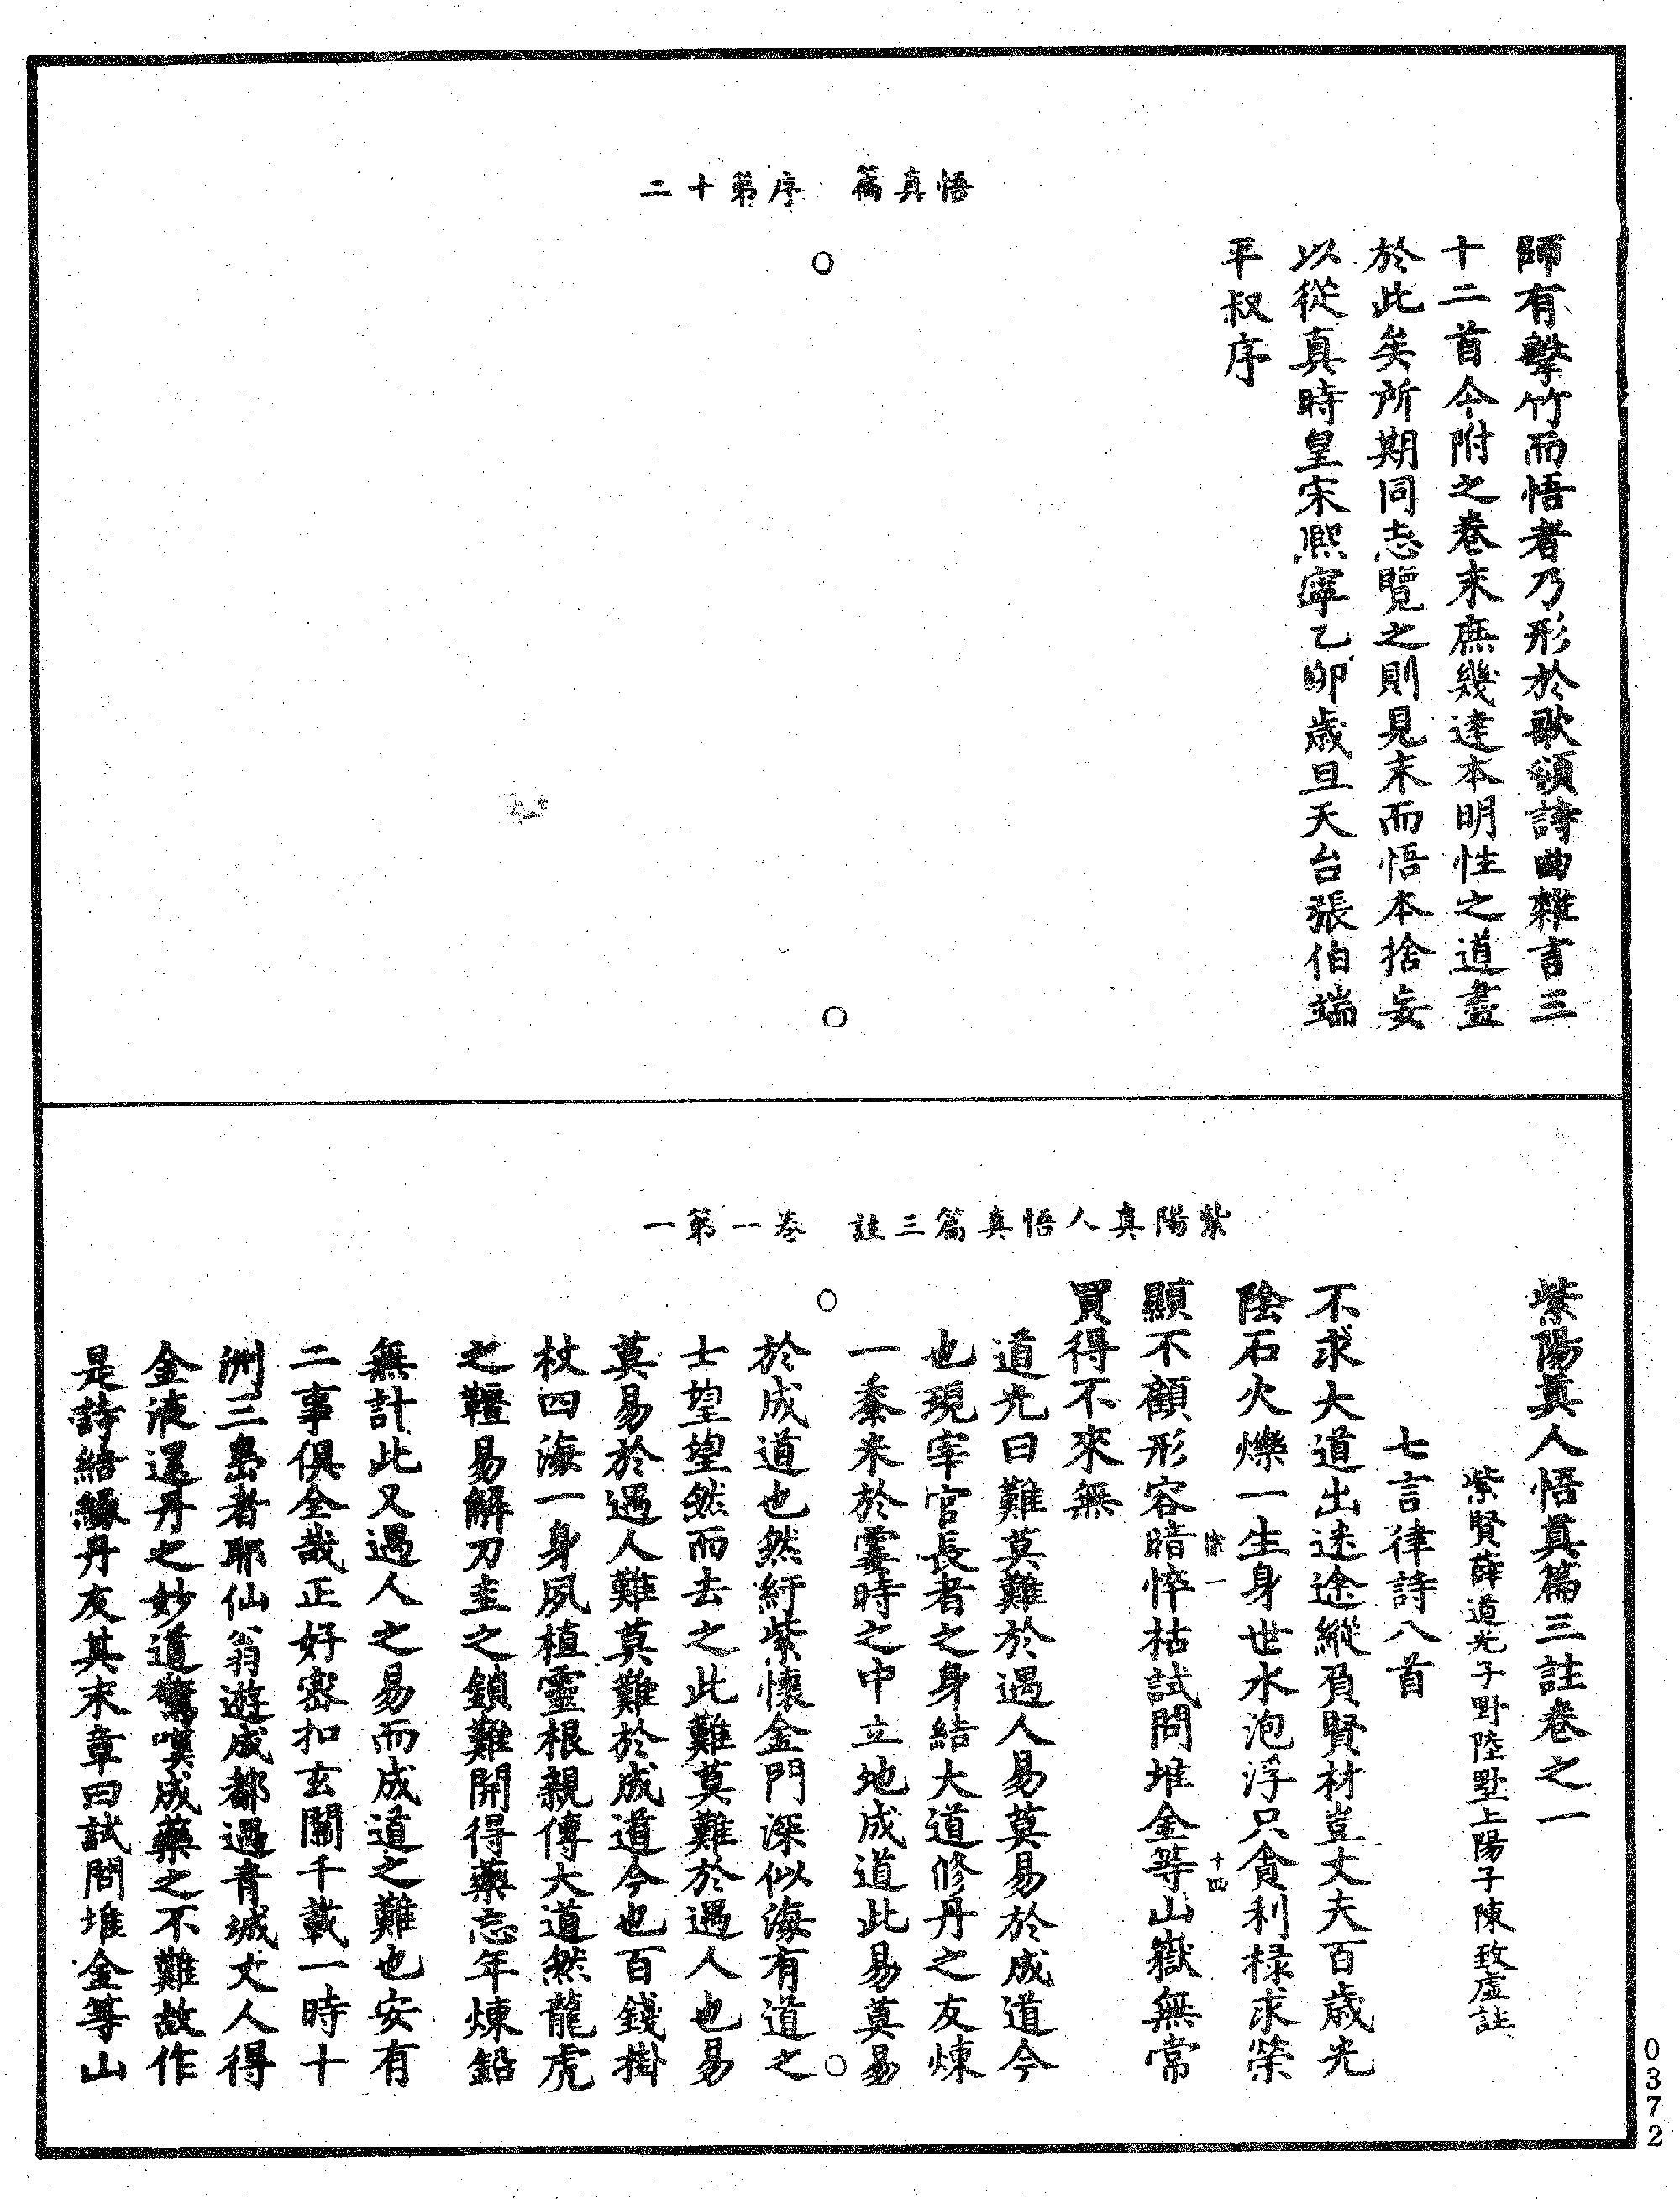 悟真篇　序第十二
師有擊竹而悟者乃形於歌頌詩曲雜言三
十二首今附之卷末庶幾達本明性之道盡
於此矣所期同志覽之則見末而悟本捨妄
以從真時皇宋熙寧乙卯歲旦天台張伯端
平叔序
紫陽真人悟真篇三註　卷一第一
紫陽真人悟真篇三註卷之一
紫賢薛道光子野陸墅上陽子陳致虛註
七言律詩八首
不求大道出迷途縱負賢材豈丈夫百歲光
陰石火爍一生身世水泡浮只貪利祿求榮
律一
十四
顯不顧形容暗悴枯試問堆金等山嶽無常
買得不來無
道光曰難莫難於遇人易莫易於成道今
也現宰官長者之身結大道修丹之友煉
一黍米於霎時之中立地成道此易莫易
於成道也然紆紫懷金門深似海有道之
士望望然而去之此難莫難於遇人也易
莫易於遇人難莫難於成道今也百錢掛
杖四海一身夙植靈根親傳大道然龍虎
之韁易解刀圭之鎖難開得藥忘年煉鉛
無計此又遇人之易而成道之難也安有
二事俱全哉正好密扣玄關千載一時十
洲三島者耶仙翁遊成都遇青城丈人得
金液還丹之妙道驚嘆成藥之不難故作
是詩結緣丹友其末章曰試問堆金等山
0372